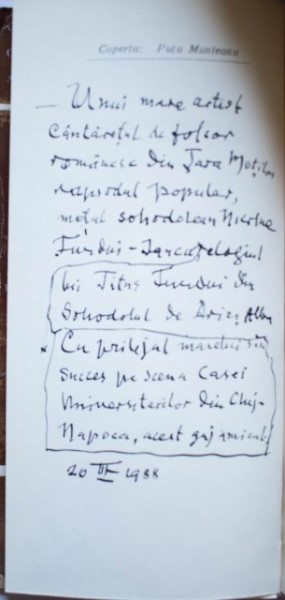 Coperta: Puia Munteanu
— Unui mare artist
Cântărețul de folcor
românesc din Țara Moților
rapsodul popular,
moțul sohodolean Nicolae
Furdui-Iancu, elogiul
lui Titus Furdui din
Sohodolul de Arieș, Alba
* Cu prilejul marelui său
succes pe scena Casei
Universitarilor din Cluj-
Napoca, acest gaj amical.
20 III 1988